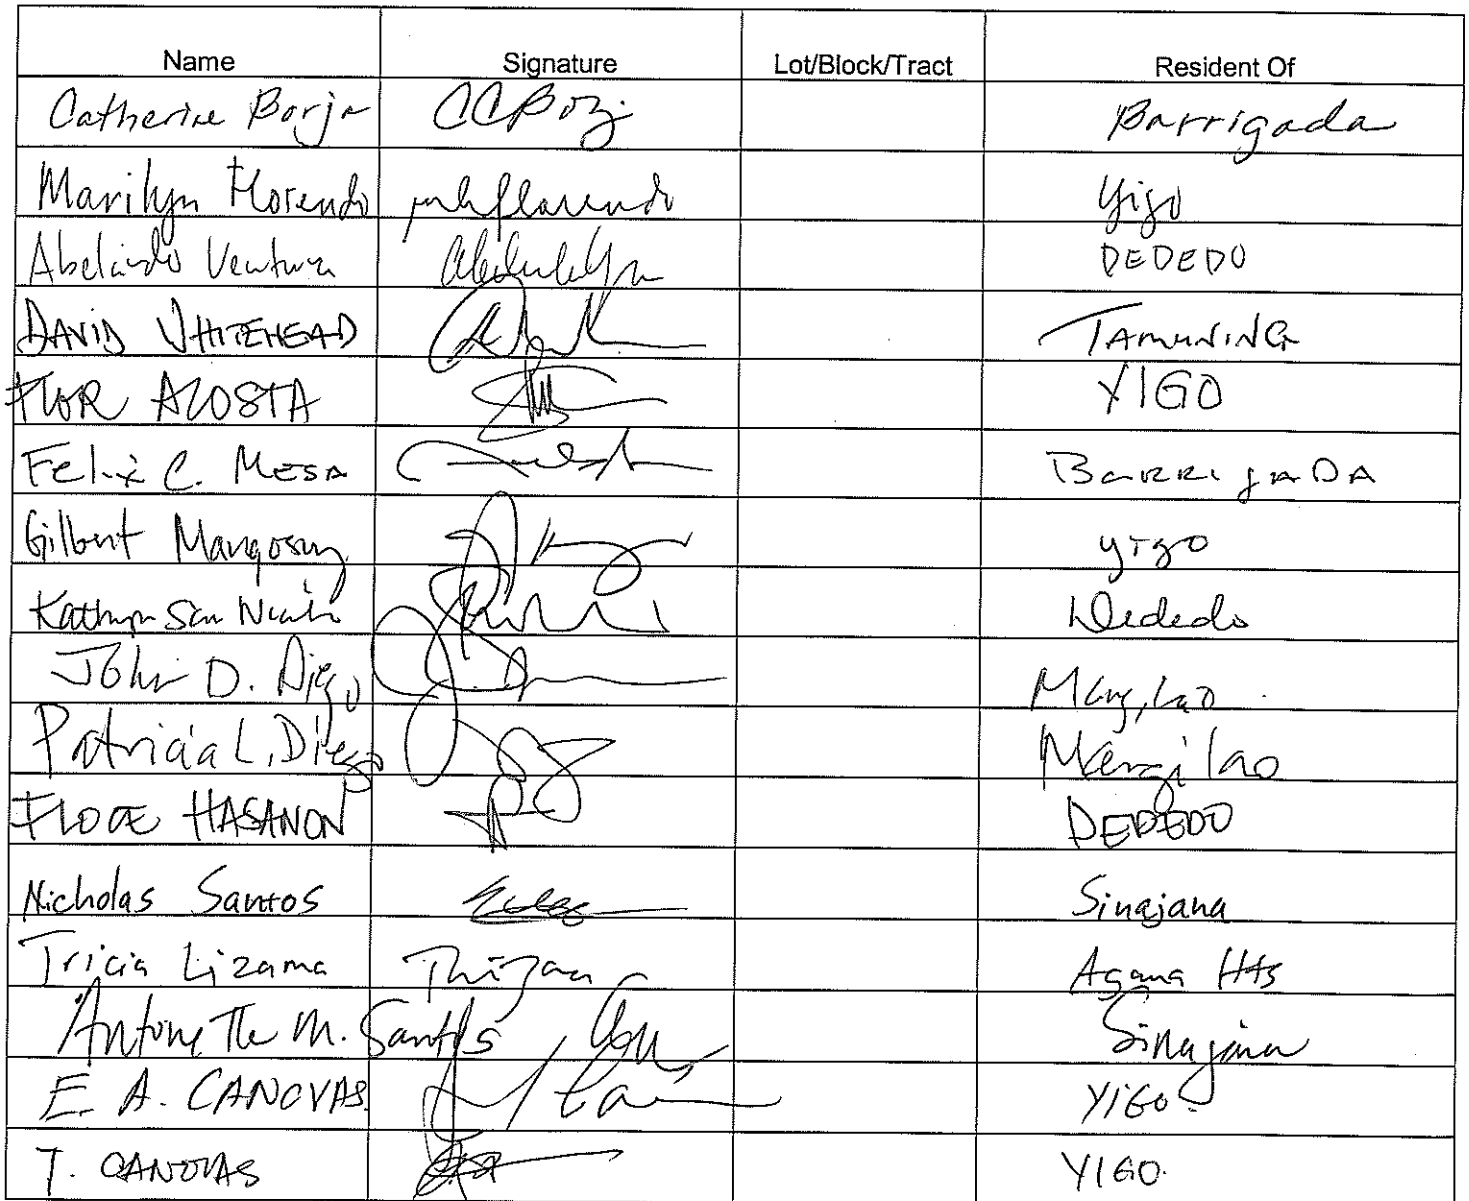 Name Signature Lot/Block/Tract Resident Of
Catherine Borja CCBorj Barrigada
Marilyn Florendo mhflorendo Yigo
Abelardo Ventura DEDEDO
DAVID WHITEHEAD TAMUNING
FLOR ACOSTA YIGO
Felix C. MESA BARRIGADA
Gilbert Mangosing yigo
Kathryn San Nicolas Dededo
John D. Diego Mangilao
Patricia L. Diego Mangilao
FLOCE HASANON DEDEDO
Nicholas Santos Sinajana
Tricia Lizama Agana Hts
Antonette M. Santos Sinajana
E. A. CANOVAS YIGO
T. CANOVAS YIGO